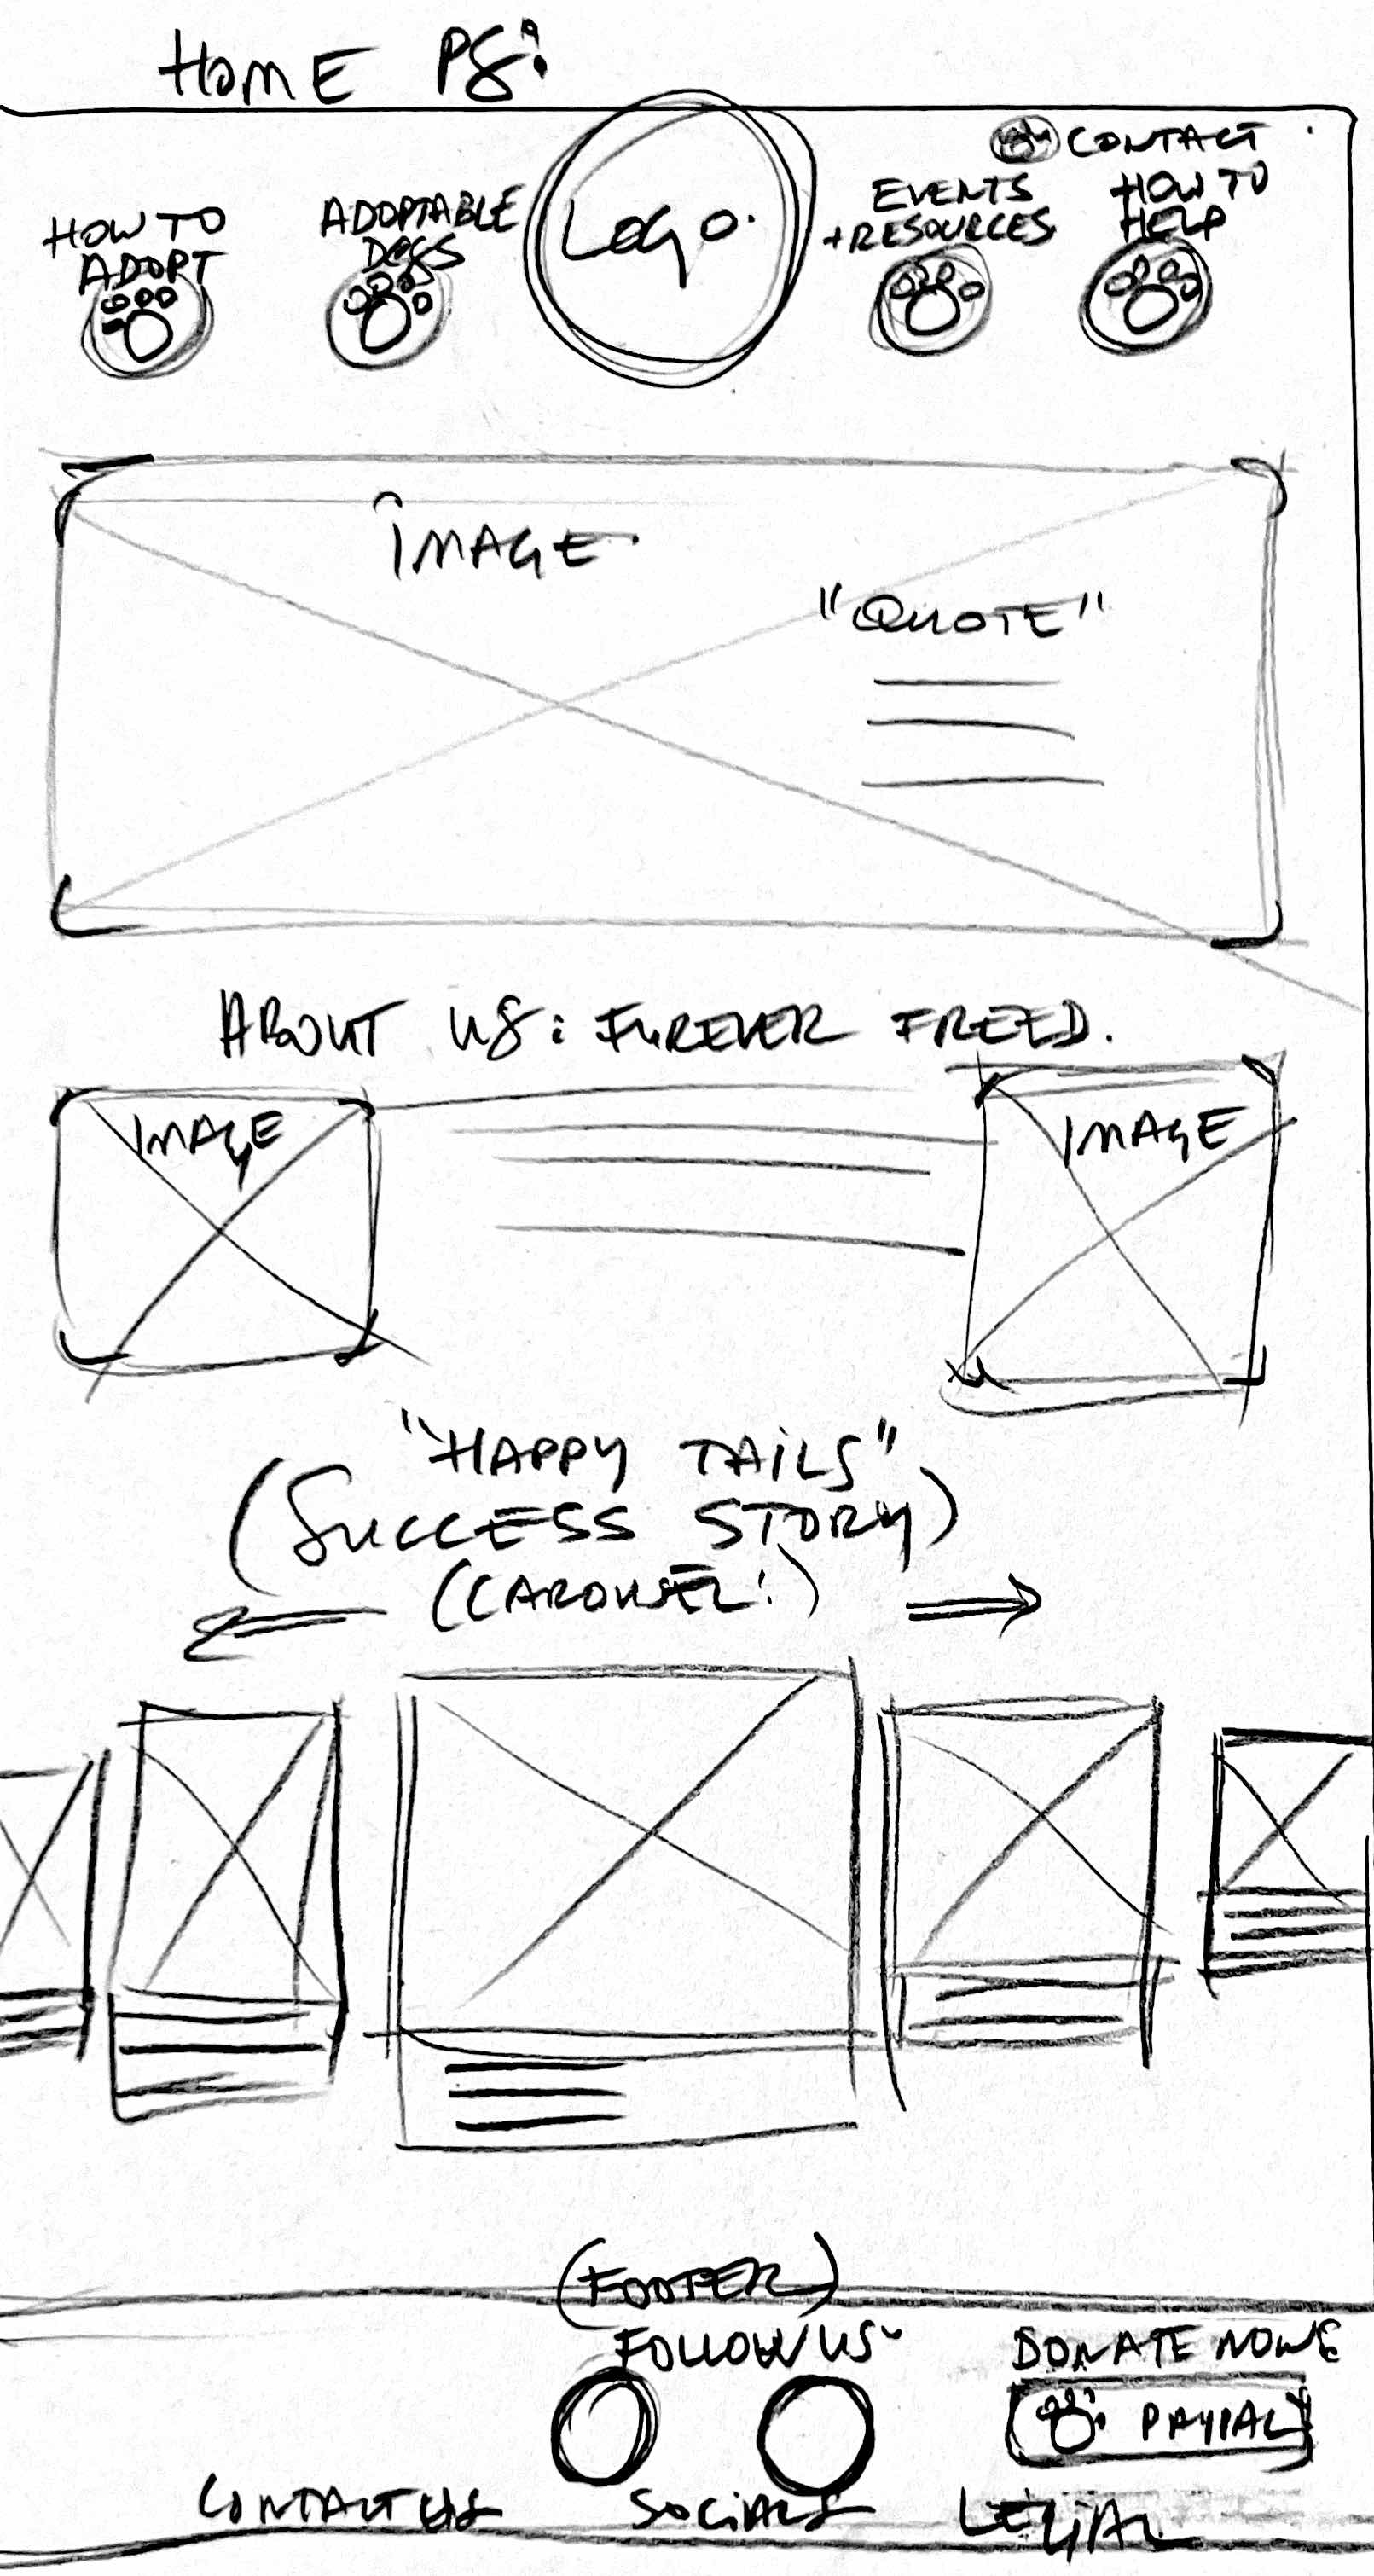 HOME PG:
CONTACT
HOW TO
ADOPT
ADOPTABLE
DOGS
LOGO.
EVENTS
+ RESOURCES
HOW TO
HELP
IMAGE
"QUOTE"
ABOUT US: FUREVER FREED.
IMAGE
IMAGE
"HAPPY TAILS"
(SUCCESS STORY)
(CAROUSEL!)
(FOOTER)
FOLLOW US
DONATE NOW
PAYPAL
CONTACT US
SOCIALS
LEGAL